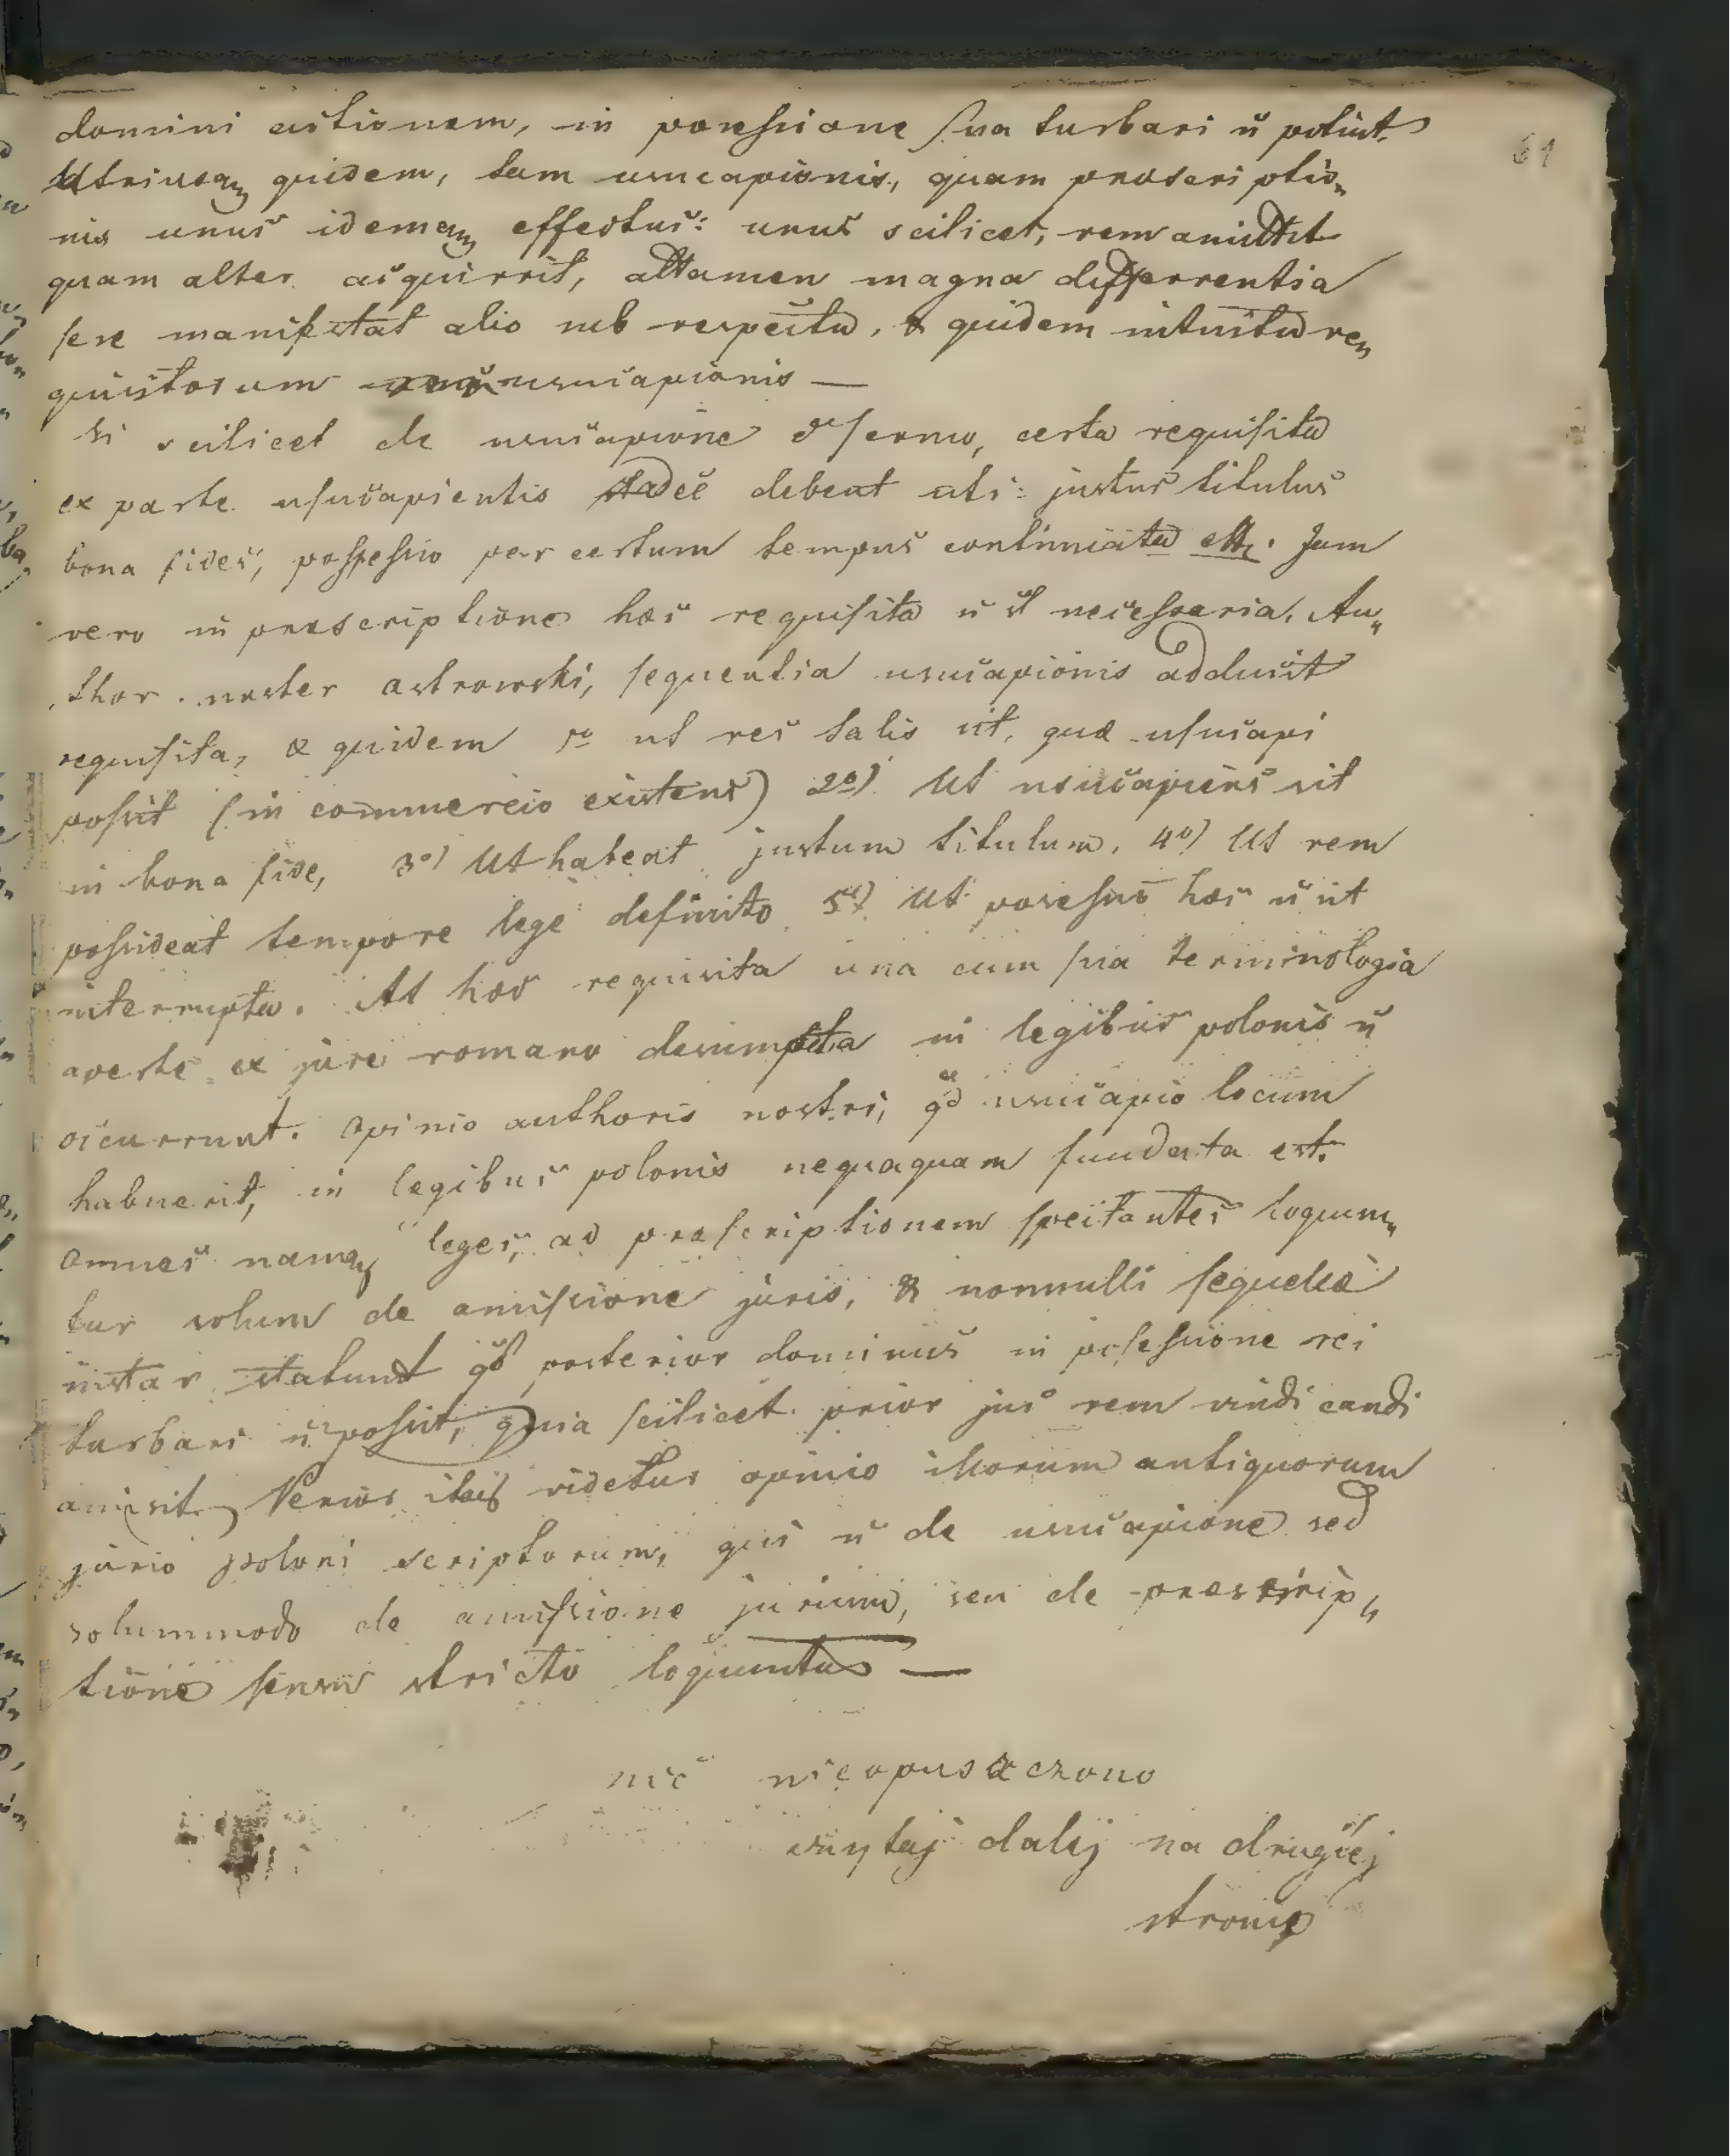 domini actionem, in possessione sua turbari ñ potuit.
Utriusq quidem, tam usucapionis, quam praescriptio„
nis unus idemq effectus: unus scilicet, rem amittit
quam alter acquirrit, attamen magna differrentia
sese manifestat alio sub respectu, & quidem intuitu re„
quisitorum usucapionis —
Si scilicet de usucapione ē sermo, certa requisita
ex parte usucapientis adeē debeat uti: justus titulus
bona fides, possessio per certum tempus continuata etc. Jam
vero in praescriptione haec requisita ñ st necessaria. Au„
thor noster Ostrowski, sequentia usucapionis adducit
requisita, & quidem 1o ut res talis sit, quae usucapi
possit (in commercio existens) 2o) Ut usucapiens sit
in bona fide, 3o) Ut habeat justum titulum, 4o) Ut rem
possideat tempore lege definito 5o) Ut possessio haec ñ sit
interrupta. At haec requisita una cum sua terminologia
aperte ex jure romano desumpta in legibus polonis ñ
occurrunt. Opinio authoris nostri, qd usucapio locum
habuerit, in legibus polonis nequaquam fundata est.
Omnes namq leges, ad praescriptionem spectantes loquun„
tur solum de amissione juris, & nonnulli sequelae
instar statunt qd posterior dominus in possessione rei
turbari ñ possit, quia scilicet prior jus rem vindicandi
amisit. Verior itaq videtur opinio illorum antiquorum
juris poloni scriptorum, qui ñ de usucapione sed
solummodo de amissione jurium, seu de praescrip„
tione sensu stricto loquuntur —
nic nieopuszczono
czytaj daléj na drugiéj
stronie
61